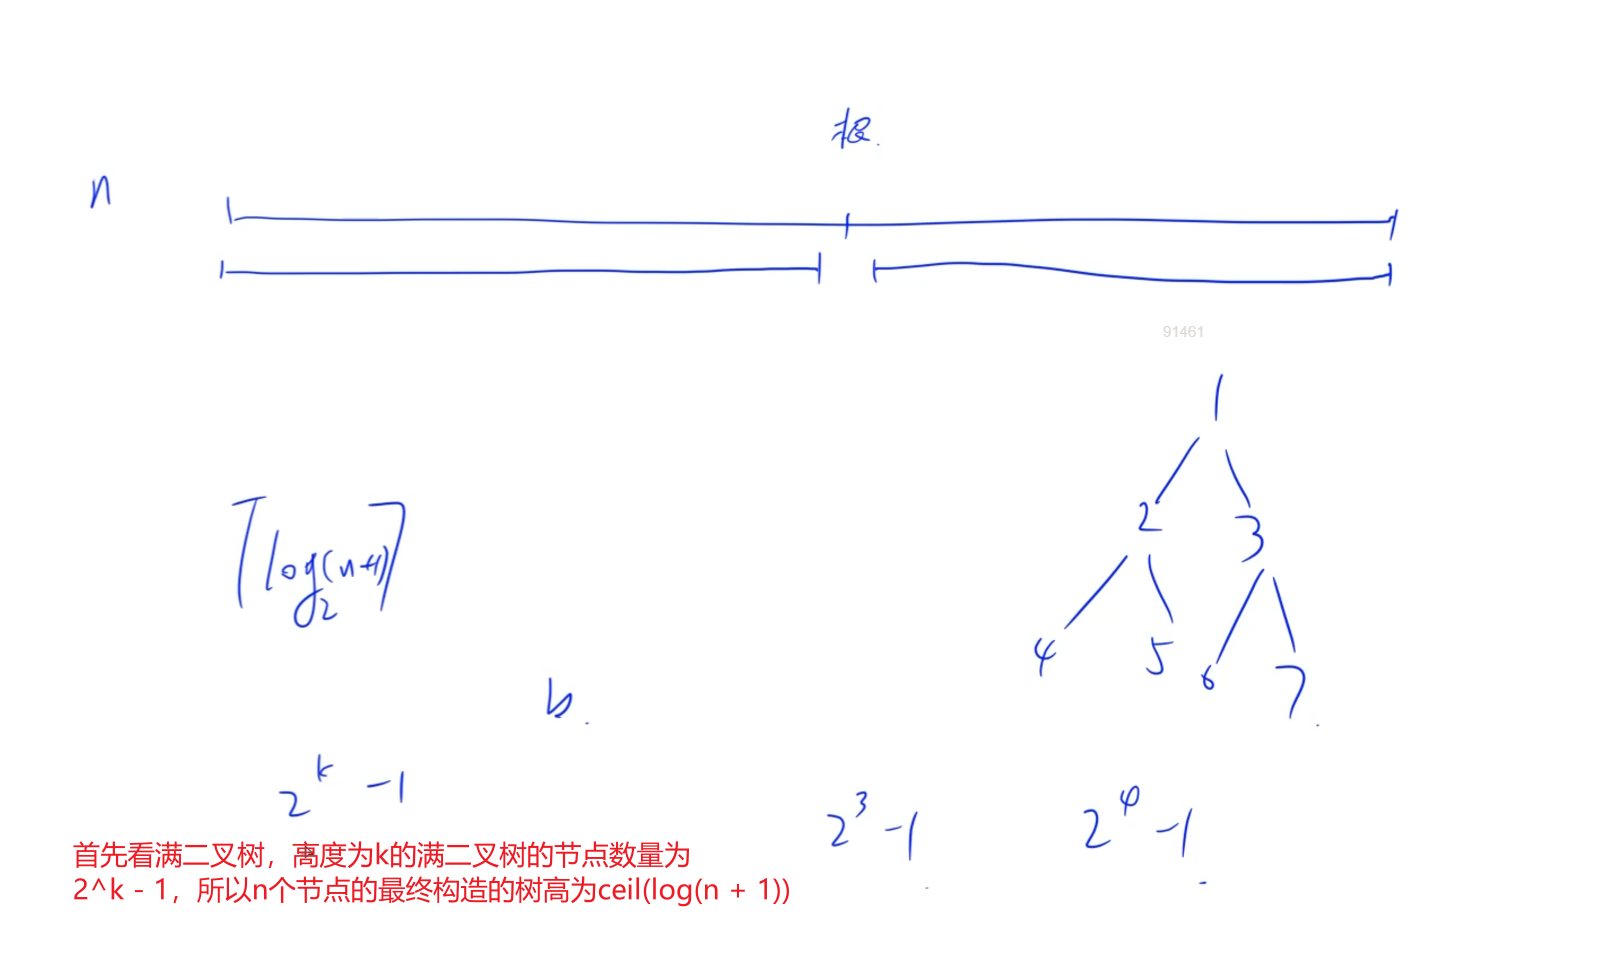 根.
n
91461
1
2 3
4 5 6 7
⌈log₂(n+1)⌉
b.
2^k -1
2^3 -1 2^4 -1
首先看满二叉树，离度为k的满二叉树的节点数量为
2^k - 1，所以n个节点的最终构造的树高为ceil(log(n + 1))